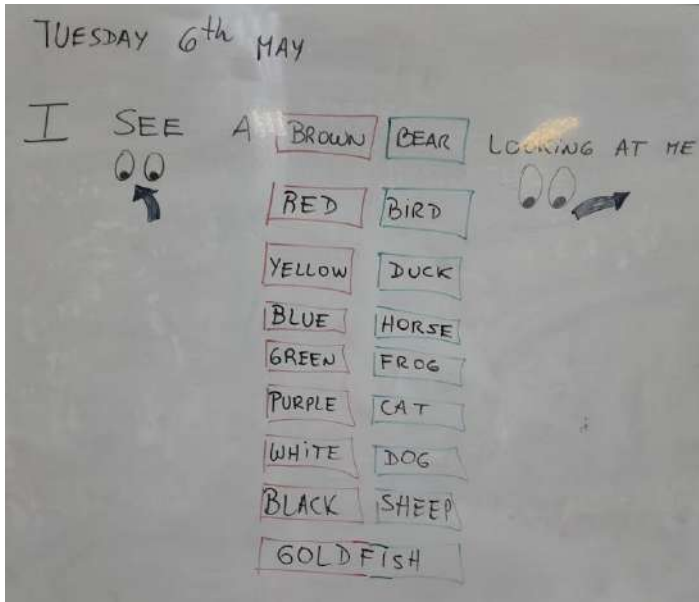 TUESDAY 6th MAY
I SEE A BROWN BEAR LOOKING AT ME
RED BIRD
YELLOW DUCK
BLUE HORSE
GREEN FROG
PURPLE CAT
WHITE DOG
BLACK SHEEP
GOLDFISH